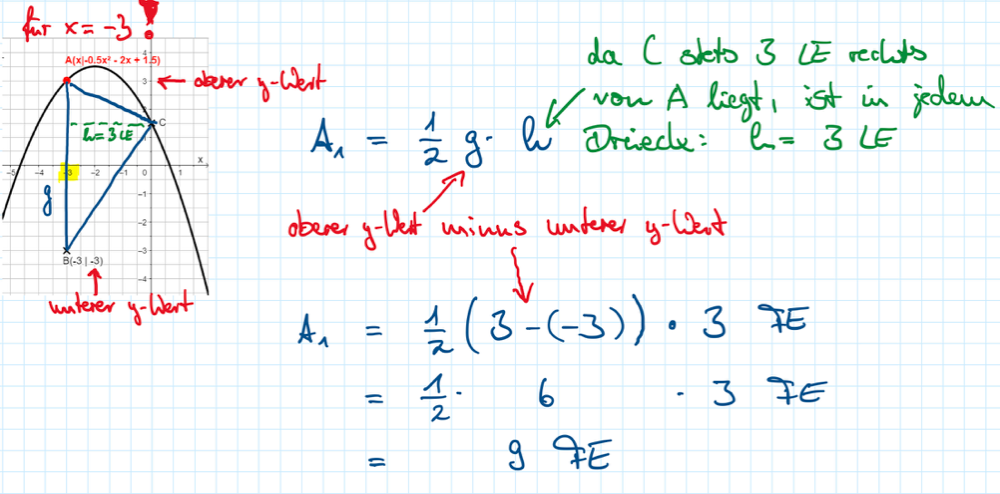 für x = -3 !
A(x|-0.5x² - 2x + 1.5)
oberer y-Wert
da C stets 3 LE rechts
von A liegt, ist in jedem
Dreieck: h = 3 LE
A₁ = 1/2 g · h
4
3
C
h = 3 LE
x
-5 -4 -3 -2 -1 0 1
g
-1
-2
-3
-4
B(-3 | -3)
unterer y-Wert
oberer y-Wert minus unterer y-Wert
A₁ = 1/2 (3 - (-3)) · 3 FE
= 1/2 · 6 · 3 FE
= 9 FE